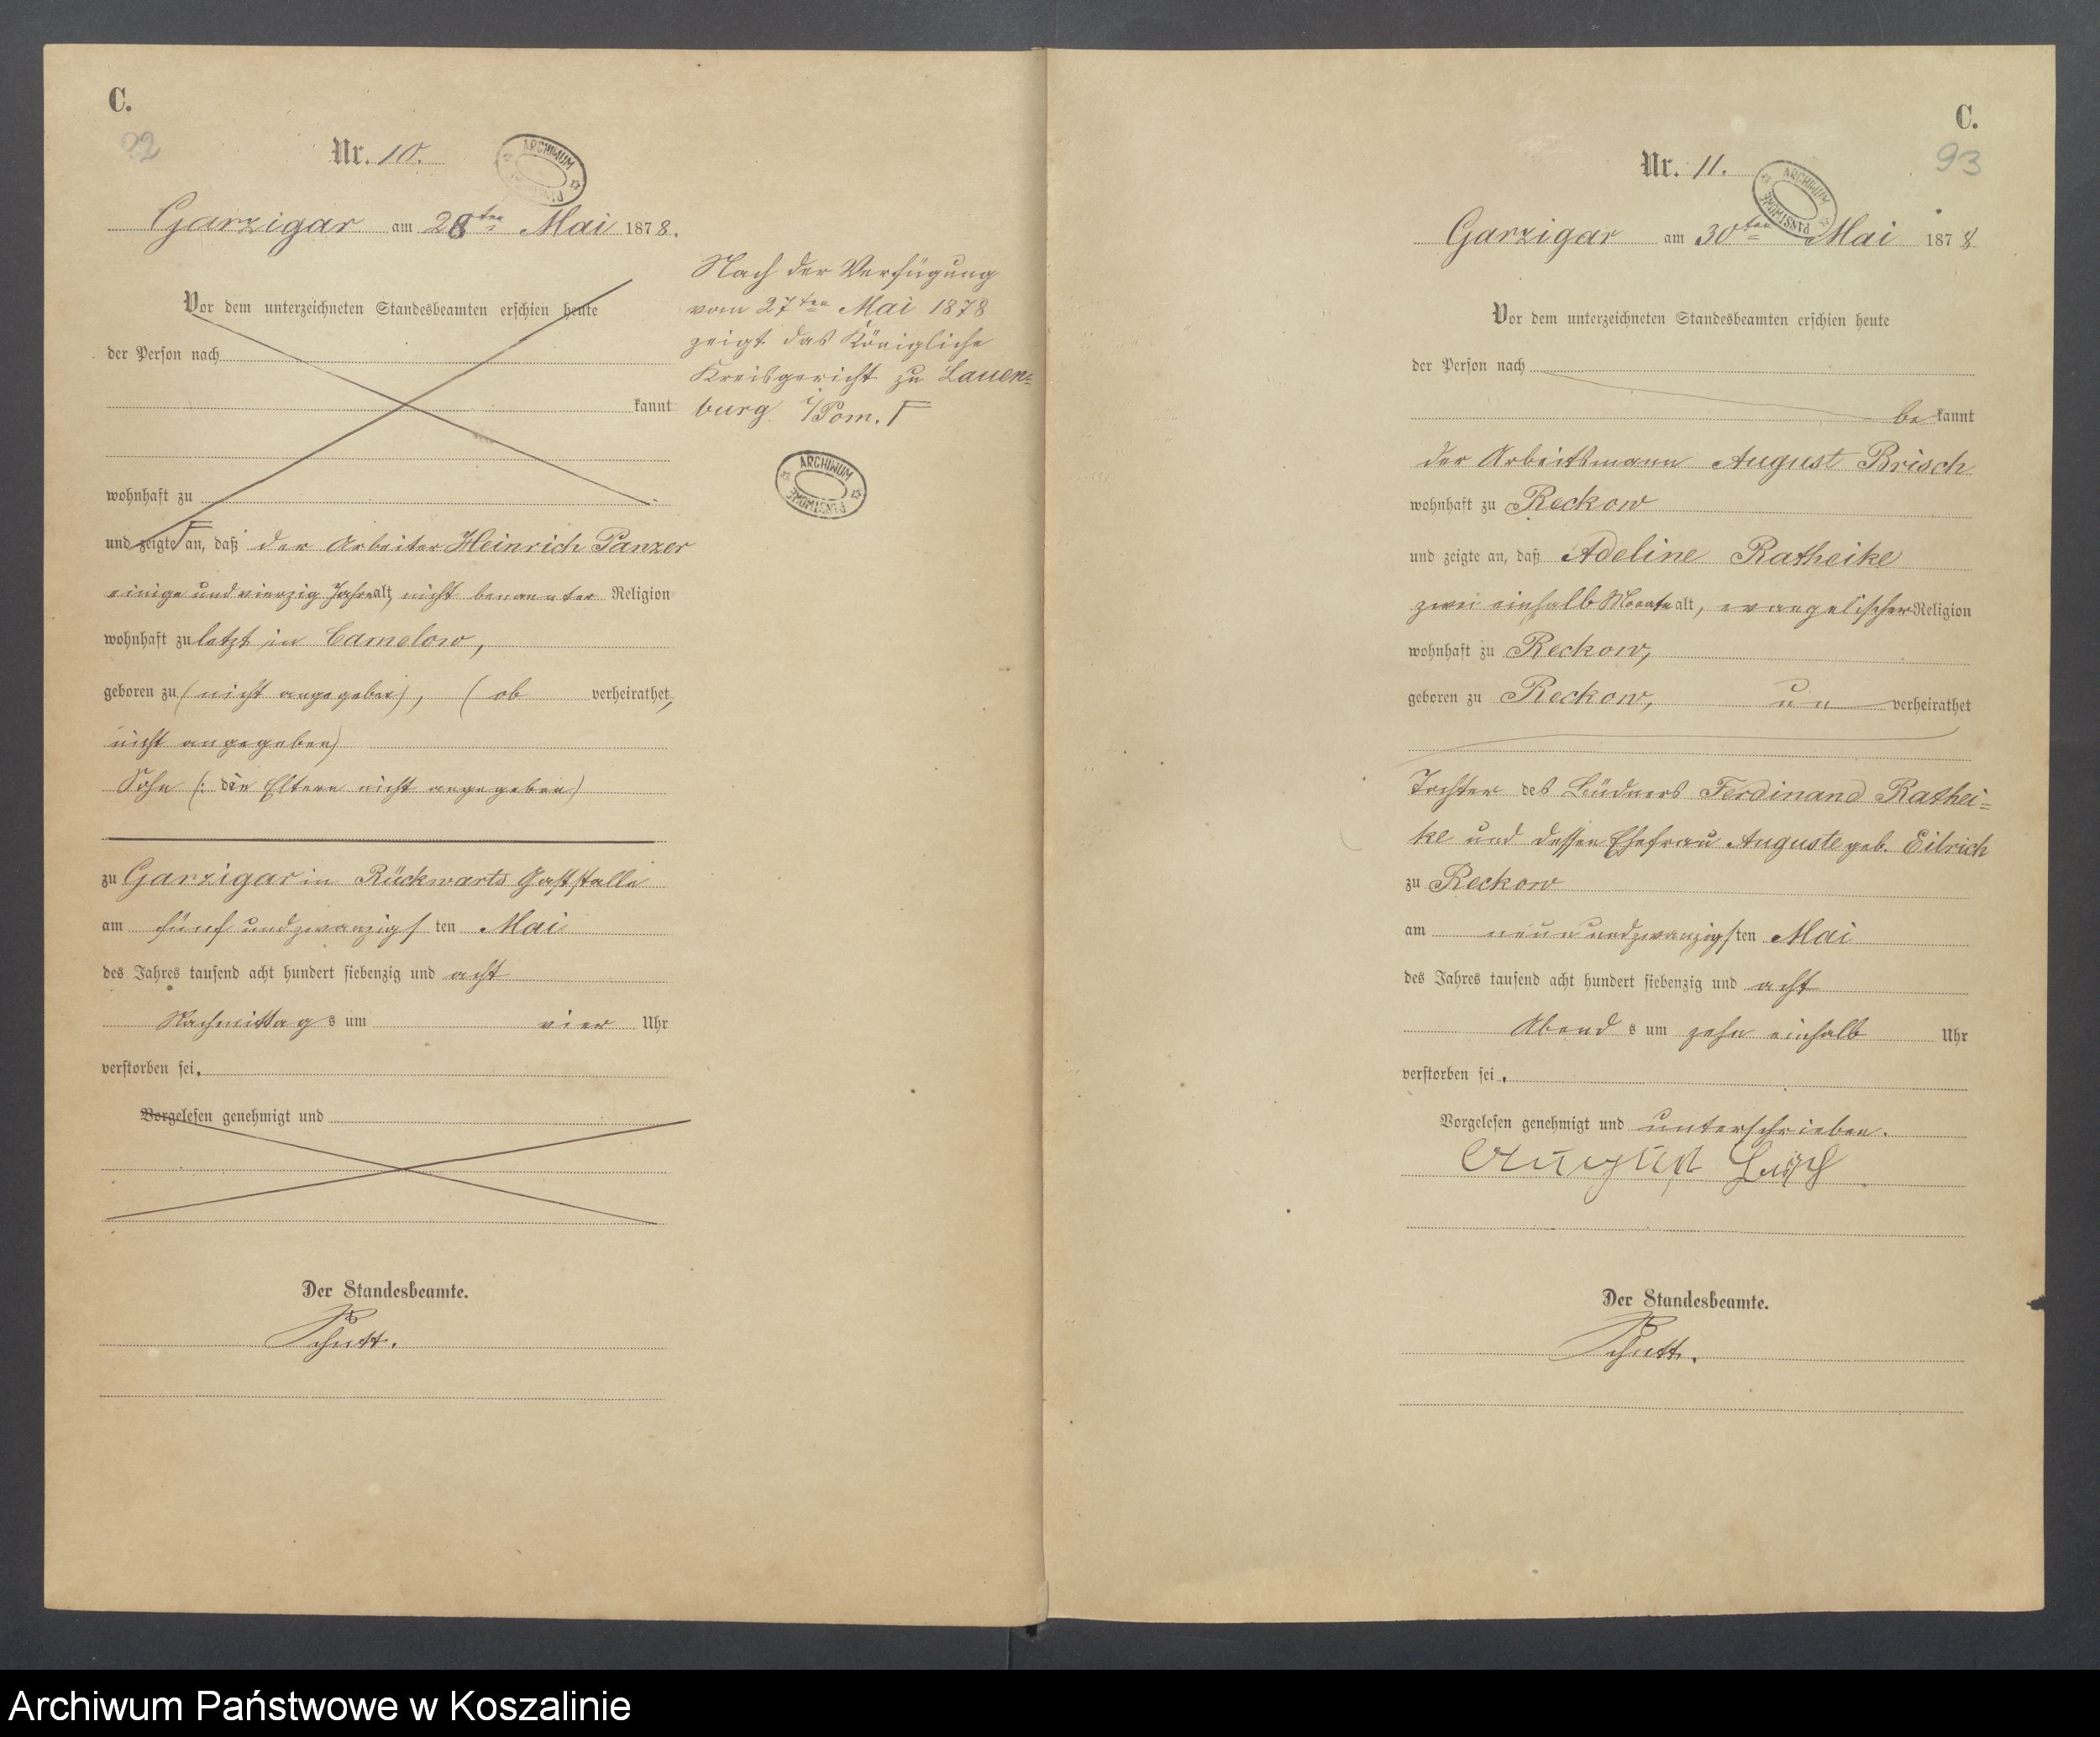 C.
92
Nr. 10.
ARCHIWUM
Garzigar am 28ten Mai 1878.
Vor dem unterzeichneten Standesbeamten erschien heute
der Person nach
kannt
wohnhaft zu
und zeigte Γ an, daß der Arbeiter Heinrich Panzer
einige und vierzig Jahre alt, nicht benannter Religion
wohnhaft zuletzt in Camelow,
geboren zu (nicht angegeben), (ob verheirathet,
nicht angegeben)
Sohn (: die Eltern nicht angegeben)
zu Garzigar in Rückwarts Gaststalle
am fünf und zwanzigsten Mai
des Jahres tausend acht hundert siebenzig und acht
Nachmittags um vier Uhr
verstorben sei.
Vorgelesen genehmigt und
Der Standesbeamte.
Schutt.
Nach der Verfügung
vom 27ten Mai 1878
zeigt das Königliche
Kreisgericht zu Lauen=
burg i/Pom. Γ
ARCHIWUM
PAŃSTWOWE
C.
93
Nr. 11.
ARCHIWUM
PAŃSTWOWE
Garzigar am 30ten Mai 1878
Vor dem unterzeichneten Standesbeamten erschien heute
der Person nach
bekannt
der Arbeitsmann August Brisch
wohnhaft zu Reckow
und zeigte an, daß Adeline Ratheike
zwei einhalb Monate alt, evangelischer Religion
wohnhaft zu Reckow,
geboren zu Reckow, unverheirathet
Tochter des Büdners Ferdinand Rathei=
ke und dessen Ehefrau Auguste geb. Eilrich
zu Reckow
am neun und zwanzigsten Mai
des Jahres tausend acht hundert siebenzig und acht
Abends um zehn einhalb Uhr
verstorben sei.
Vorgelesen genehmigt und unterschrieben.
August
Der Standesbeamte.
Schutt.
Archiwum Państwowe w Koszalinie